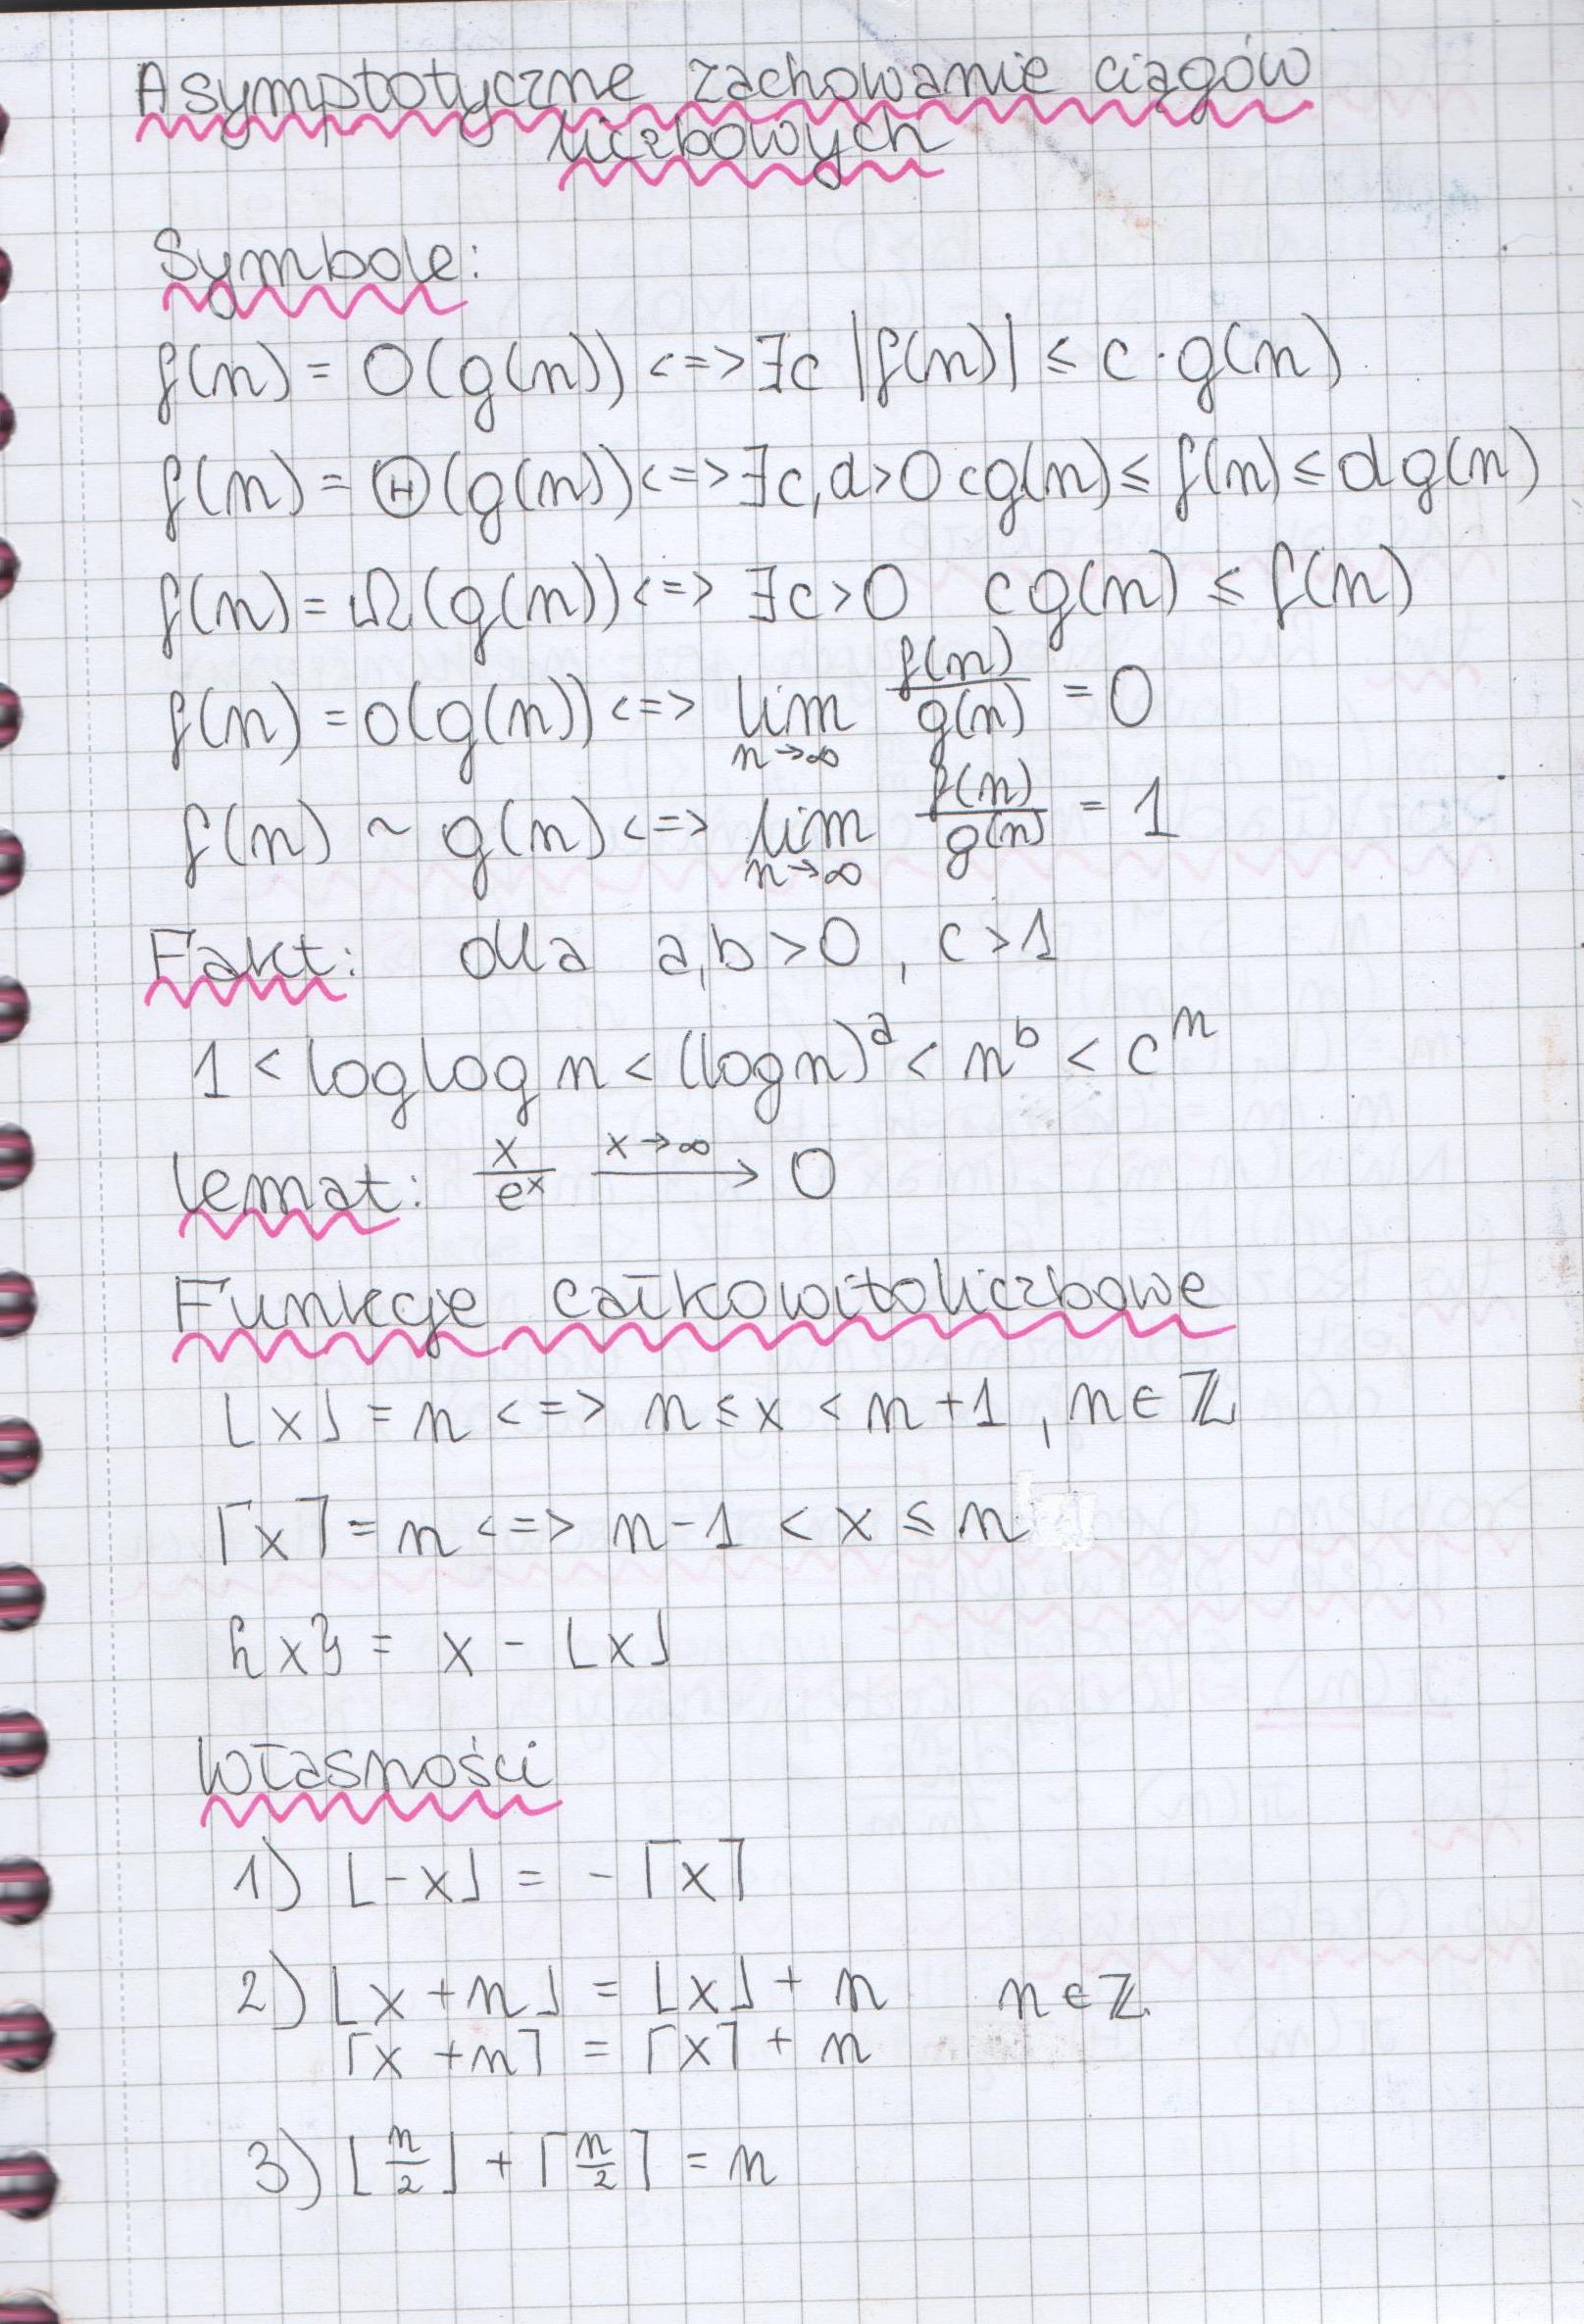 Asymptotyczne zachowanie ciągów
liczbowych
Symbole:
f(n) = O(g(n)) <=> ∃c |f(n)| ≤ c · g(n)
f(n) = Θ(g(n)) <=> ∃c,d>0 cg(n) ≤ f(n) ≤ dg(n)
f(n) = Ω(g(n)) <=> ∃c>0 cg(n) ≤ f(n)
f(n) = o(g(n)) <=> lim_{n→∞} f(n)/g(n) = 0
f(n) ~ g(n) <=> lim_{n→∞} f(n)/g(n) = 1
Fakt: dla a,b > 0, c > 1
1 < log log n < (log n)^a < n^b < c^n
Lemat: x/e^x —x→∞→ 0
Funkcje całkowitoliczbowe
⌊x⌋ = n <=> n ≤ x < n+1, n ∈ ℤ
⌈x⌉ = n <=> n-1 < x ≤ n
{x} = x - ⌊x⌋
Własności
1) ⌊-x⌋ = -⌈x⌉
2) ⌊x+n⌋ = ⌊x⌋ + n n ∈ ℤ
⌈x+n⌉ = ⌈x⌉ + n
3) ⌊n/2⌋ + ⌈n/2⌉ = n